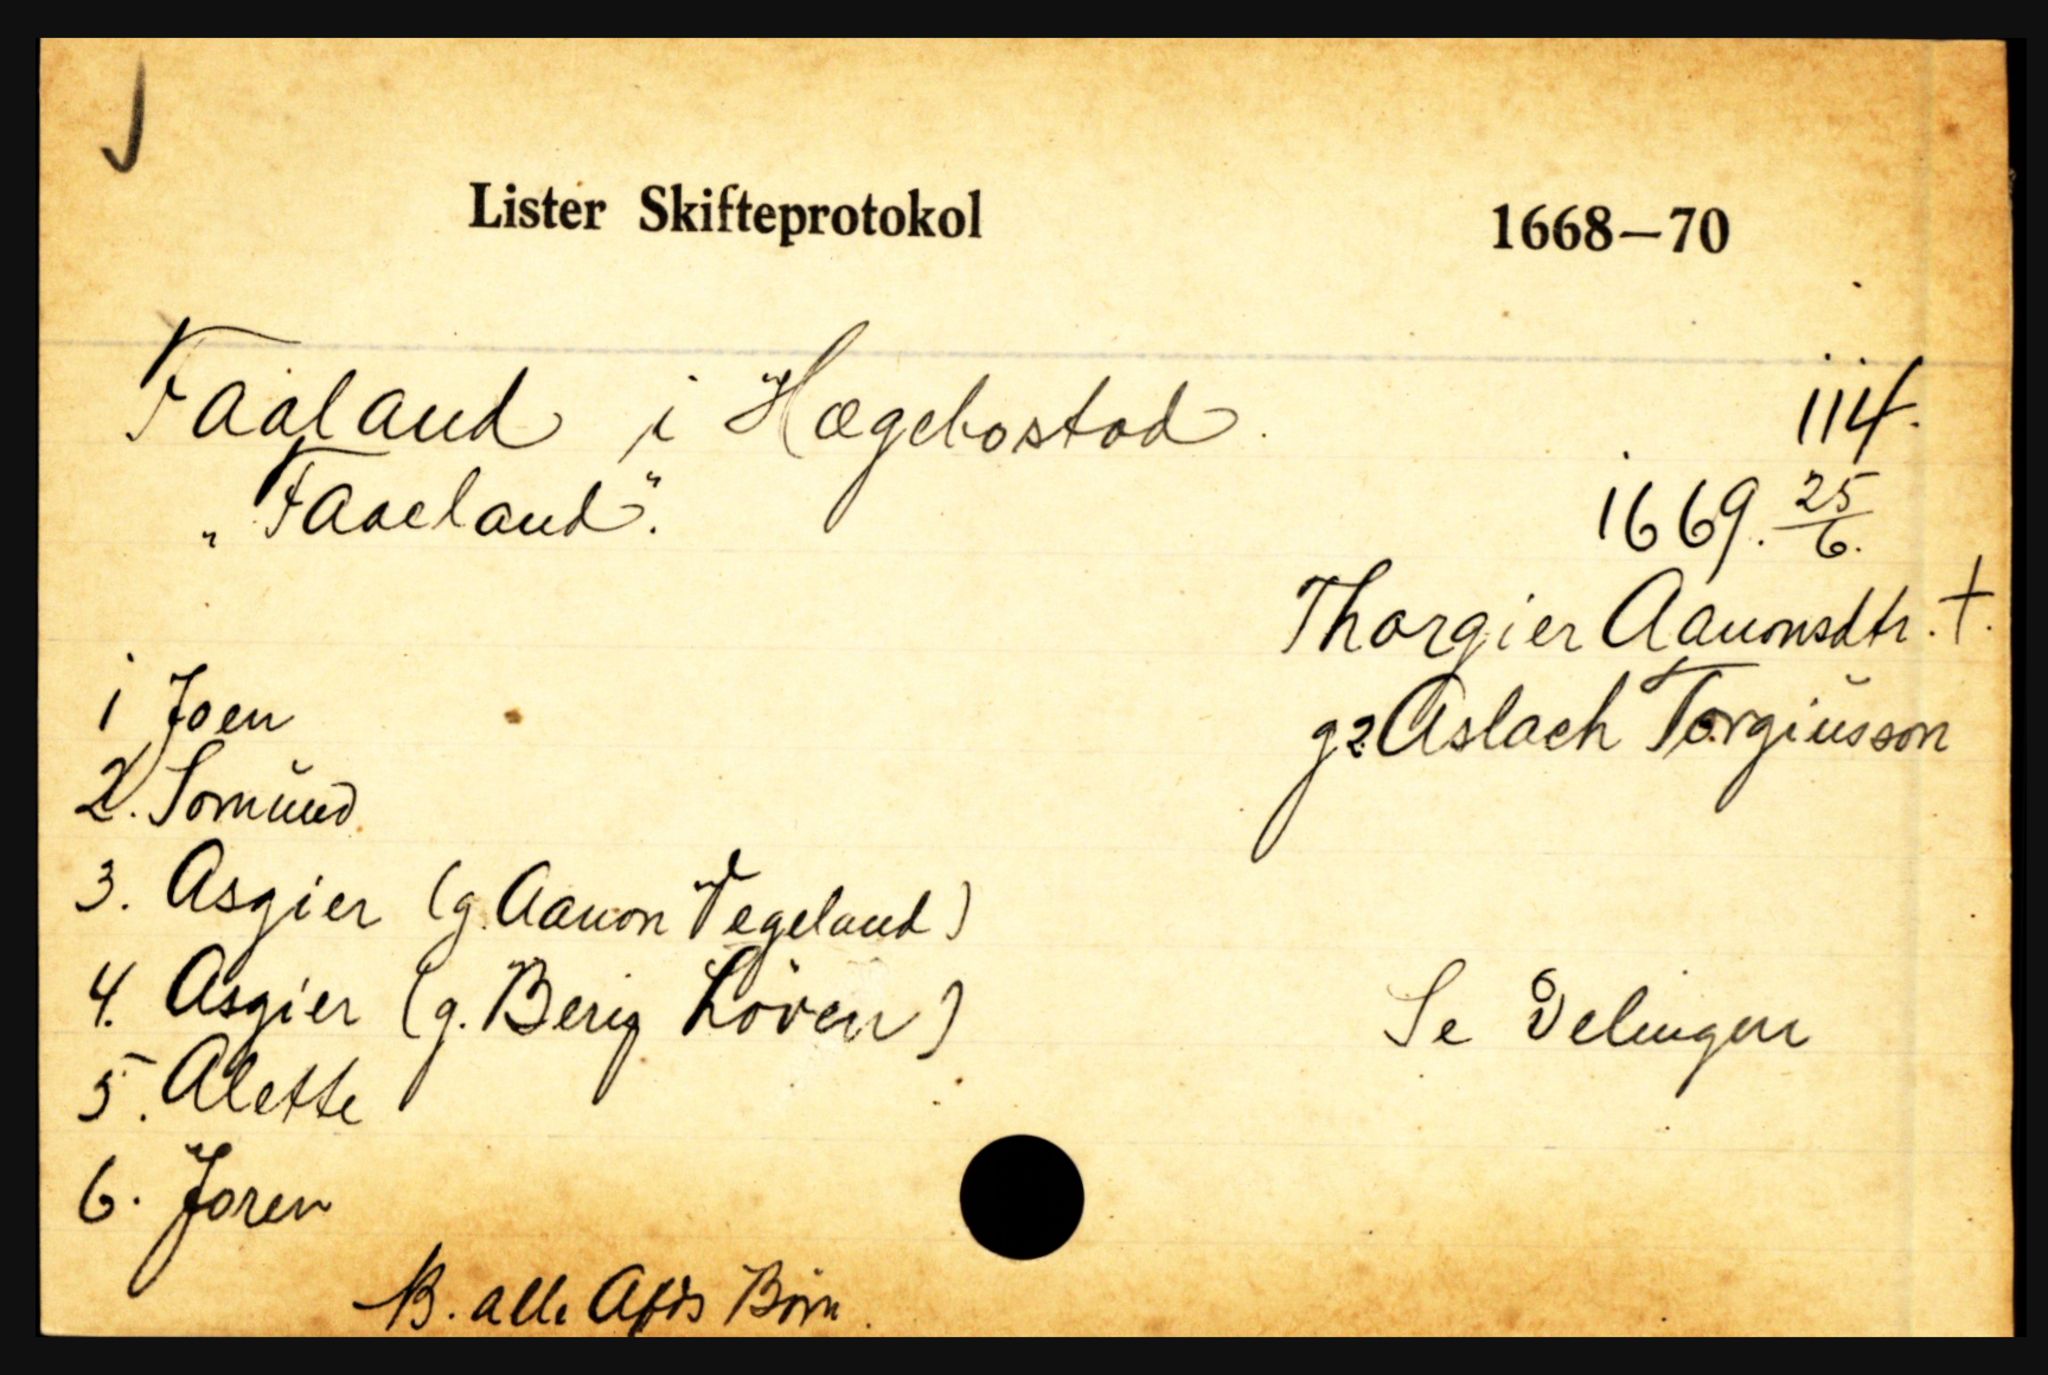 Lister Skifteprotokol 1668—70
Faaland i Hægebostad. 114.
„Faaeland". 1669. 25/6.
Thorgier Aanonsdtr. †.
1 Joen
g2. Aslach Torgiusson
2. Somund
3. Asgier (g. Aanon Vegeland)
4. Asgier (g. Berig Löven) Se Delingen
5. Alette
6. Joren
NB. alle Afds Børn.